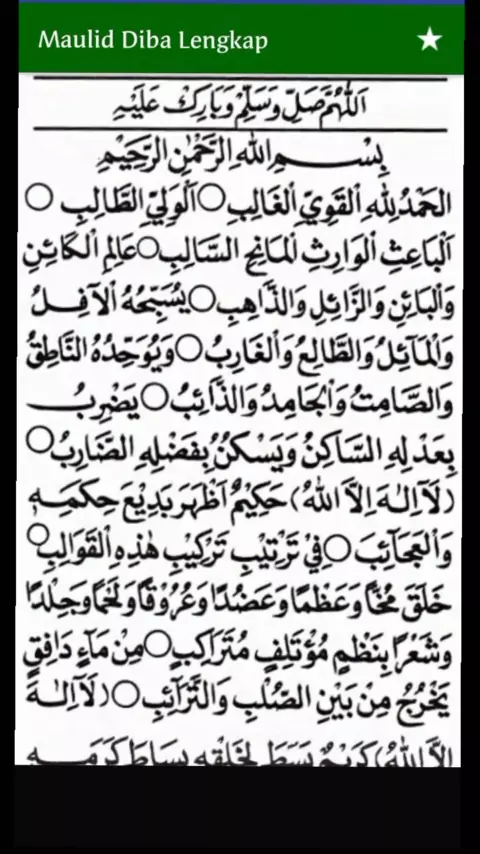 Maulid Diba Lengkap
اَللّٰهُمَّ صَلِّ وَسَلِّمْ وَبَارِكْ عَلَيْهِ
بِسْمِ اللهِ الرَّحْمٰنِ الرَّحِيْمِ
اَلْحَمْدُ لِلّٰهِ الْقَوِيِّ الْغَالِبِ ۝ اَلْوَلِيِّ الطَّالِبِ ۝
اَلْبَاعِثِ الْوَارِثِ الْمَانِحِ السَّالِبِ ۝ عَالِمِ الْكَائِنِ
وَالْبَائِنِ وَالزَّائِلِ وَالذَّاهِبِ ۝ يُسَبِّحُهُ الْآفِلُ
وَالْمَآئِلُ وَالطَّالِعُ وَالْغَارِبُ ۝ وَيُوَحِّدُهُ النَّاطِقُ
وَالصَّامِتُ وَالْجَامِدُ وَالذَّآئِبُ ۝ يَضْرِبُ
بِعَدْلِهِ السَّاكِنُ وَيَسْكُنُ بِفَضْلِهِ الضَّارِبُ ۝
(لَآ اِلٰهَ اِلَّا اللهُ) حَكِيْمٌ اَظْهَرَ بَدِيْعَ حِكَمِهِ
وَالْعَجَآئِبَ ۝ فِيْ تَرْتِيْبِ تَرْكِيْبِ هٰذِهِ الْقَوَالِبِ ۝
خَلَقَ مُخًّا وَعَظْمًا وَعَضُدًا وَعُرُوْقًا وَلَحْمًا وَجِلْدًا
وَشَعْرًا بِنَظْمٍ مُؤْتَلِفٍ مُتَرَاكِبٍ ۝ مِنْ مَآءٍ دَافِقٍ
يَخْرُجُ مِنْ بَيْنِ الصُّلْبِ وَالتَّرَآئِبِ ۝ (لَآ اِلٰهَ
اِلَّا اللهُ) كَرِيْمٌ بَسَطَ لِخَلْقِهِ بِسَاطَ كَرَمِهِ